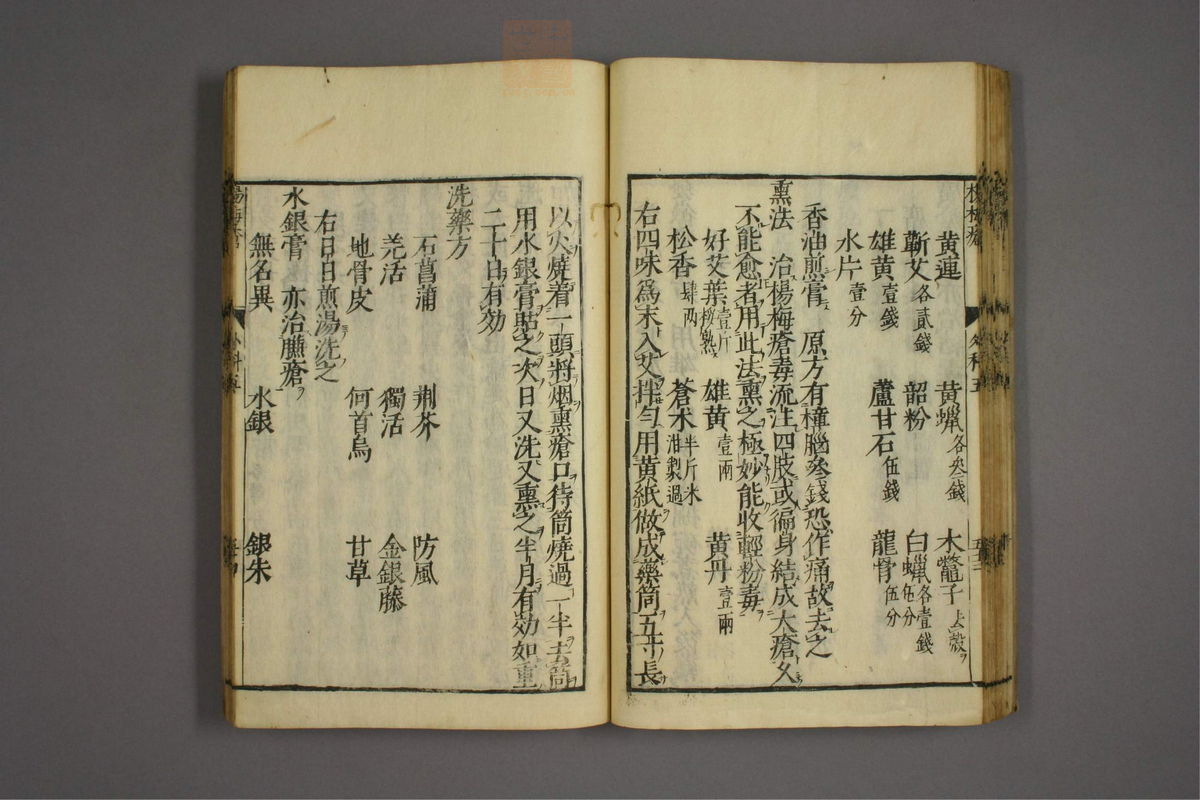 黄連 黄蝋各叁錢 木鼈子去殼
蘄艾各貳錢 韶粉 白蝋各壹錢伍分
雄黄壹錢 蘆甘石伍錢 龍骨伍分
氷片壹分
香油煎膏 原方有樟腦叁錢恐作痛故去之
熏法 治楊梅瘡毒流注四肢或徧身結成大瘡久
不能愈者用此法熏之極妙能收輕粉毒
好艾葉壹斤搓熟 雄黄壹兩 黄丹壹兩
松香肆两 蒼术半斤米泔製過
右四味爲末入艾拌勻用黄紙做成藥筒五寸長
以火燒着一頭將烟熏瘡口待筒燒過一半去筒
用水銀膏貼之次日又洗又熏之半月有効如重
二十日有効
洗藥方
石菖蒲 荆芥 防風
羌活 獨活 金銀藤
地骨皮 何首烏 甘草
右日日煎湯洗之
水銀膏 亦治臁瘡
無名異 水銀 銀朱
外科五